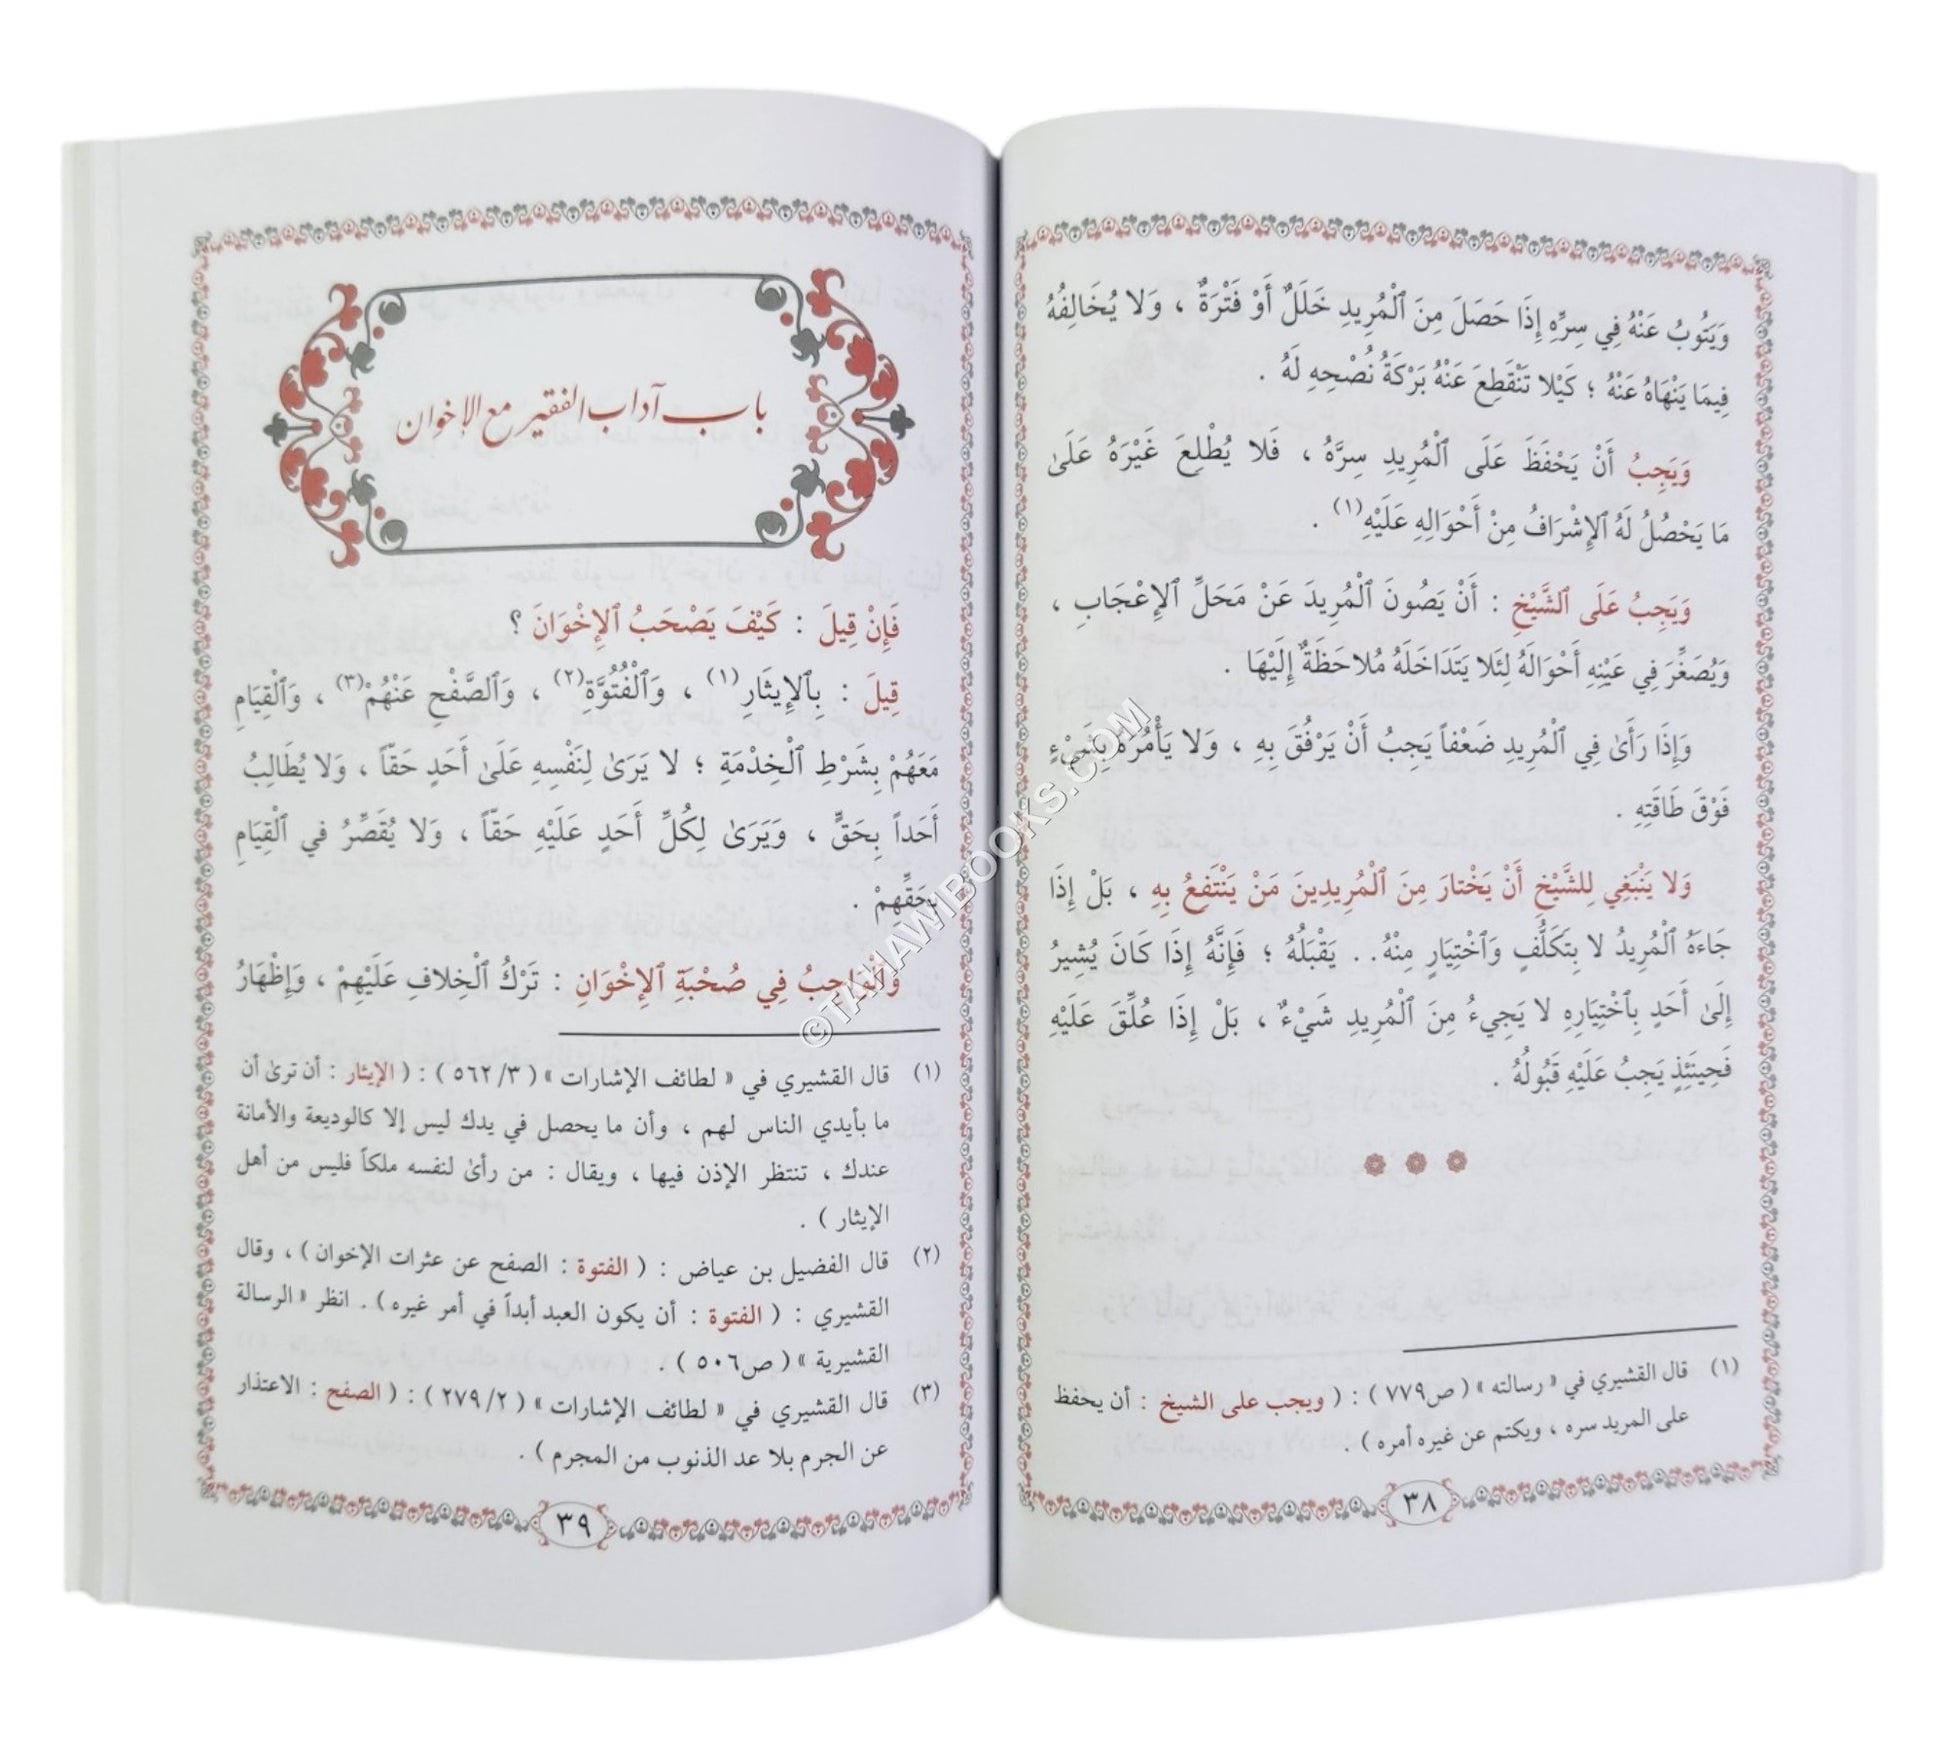 وَيَتُوبُ عَنْهُ فِي سِرِّهِ إِذَا حَصَلَ مِنَ ٱلْمُرِيدِ خَلَلٌ أَوْ فَتْرَةٌ ، وَلا يُخَالِفُهُ
فِيمَا يَنْهَاهُ عَنْهُ ؛ كَيْلا تَنْقَطِعَ عَنْهُ بَرْكَةُ نُصْحِهِ لَهُ .
وَيَجِبُ أَنْ يَحْفَظَ عَلَى ٱلْمُرِيدِ سِرَّهُ ، فَلا يُطْلِعَ غَيْرَهُ عَلَىٰ
مَا يَحْصُلُ لَهُ ٱلإِشْرَافُ مِنْ أَحْوَالِهِ عَلَيْهِ(١) .
وَيَجِبُ عَلَى ٱلشَّيْخِ : أَنْ يَصُونَ ٱلْمُرِيدَ عَنْ مَحَلِّ ٱلإِعْجَابِ ،
وَيُصَغِّرَ فِي عَيْنِهِ أَحْوَالَهُ لِئَلا يَتَدَاخَلَهُ مُلاحَظَةٌ إِلَيْهَا .
وَإِذَا رَأَىٰ فِي ٱلْمُرِيدِ ضَعْفاً يَجِبُ أَنْ يَرْفُقَ بِهِ ، وَلا يَأْمُرُهُ بِشَيْءٍ
فَوْقَ طَاقَتِهِ .
وَلا يَنْبَغِي لِلشَّيْخِ أَنْ يَخْتارَ مِنَ ٱلْمُرِيدِينَ مَنْ يَنْتَفِعُ بِهِ ، بَلْ إِذَا
جَاءَهُ ٱلْمُرِيدُ لا بِتَكَلُّفٍ وَٱخْتِيَارٍ مِنْهُ .. يَقْبَلُهُ ؛ فَإِنَّهُ إِذَا كَانَ يُشِيرُ
إِلَىٰ أَحَدٍ بِٱخْتِيَارِهِ لا يَجِيءُ مِنَ ٱلْمُرِيدِ شَيْءٌ ، بَلْ إِذَا عُلِّقَ عَلَيْهِ
فَحِينَئِذٍ يَجِبُ عَلَيْهِ قَبُولُهُ .
(١) قال القشيري في « رسالته » ( ص٧٧٩ ) : ( ويجب على الشيخ : أن يحفظ
على المريد سره ، ويكتم عن غيره أمره ) .
٣٨
باب آداب الفقير مع الإخوان
فَإِنْ قِيلَ : كَيْفَ يَصْحَبُ ٱلإِخْوَانَ ؟
قِيلَ : بِٱلإِيثَارِ(١) ، وَٱلْفُتُوَّةِ(٢) ، وَٱلصَّفْحِ عَنْهُمْ(٣) ، وَٱلْقِيَامِ
مَعَهُمْ بِشَرْطِ ٱلْخِدْمَةِ ؛ لا يَرَىٰ لِنَفْسِهِ عَلَىٰ أَحَدٍ حَقّاً ، وَلا يُطَالِبُ
أَحَداً بِحَقٍّ ، وَيَرَىٰ لِكُلِّ أَحَدٍ عَلَيْهِ حَقّاً ، وَلا يُقَصِّرُ في ٱلْقِيَامِ
بِحَقِّهِمْ .
وَٱلْوَاجِبُ فِي صُحْبَةِ ٱلإِخْوَانِ : تَرْكُ ٱلْخِلافِ عَلَيْهِمْ ، وَإِظْهَارُ
(١) قال القشيري في « لطائف الإشارات » ( ٣/ ٥٦٢ ) : ( الإيثار : أن ترىٰ أن
ما بأيدي الناس لهم ، وأن ما يحصل في يدك ليس إلا كالوديعة والأمانة
عندك ، تنتظر الإذن فيها ، ويقال : من رأىٰ لنفسه ملكاً فليس من أهل
الإيثار ) .
(٢) قال الفضيل بن عياض : ( الفتوة : الصفح عن عثرات الإخوان ) ، وقال
القشيري : ( الفتوة : أن يكون العبد أبداً في أمر غيره ) . انظر « الرسالة
القشيرية » ( ص٥٠٦ ) .
(٣) قال القشيري في « لطائف الإشارات » ( ٢/ ٢٧٩ ) : ( الصفح : الاعتذار
عن الجرم بلا عد الذنوب من المجرم ) .
٣٩
©TAHAWIBOOKS.COM